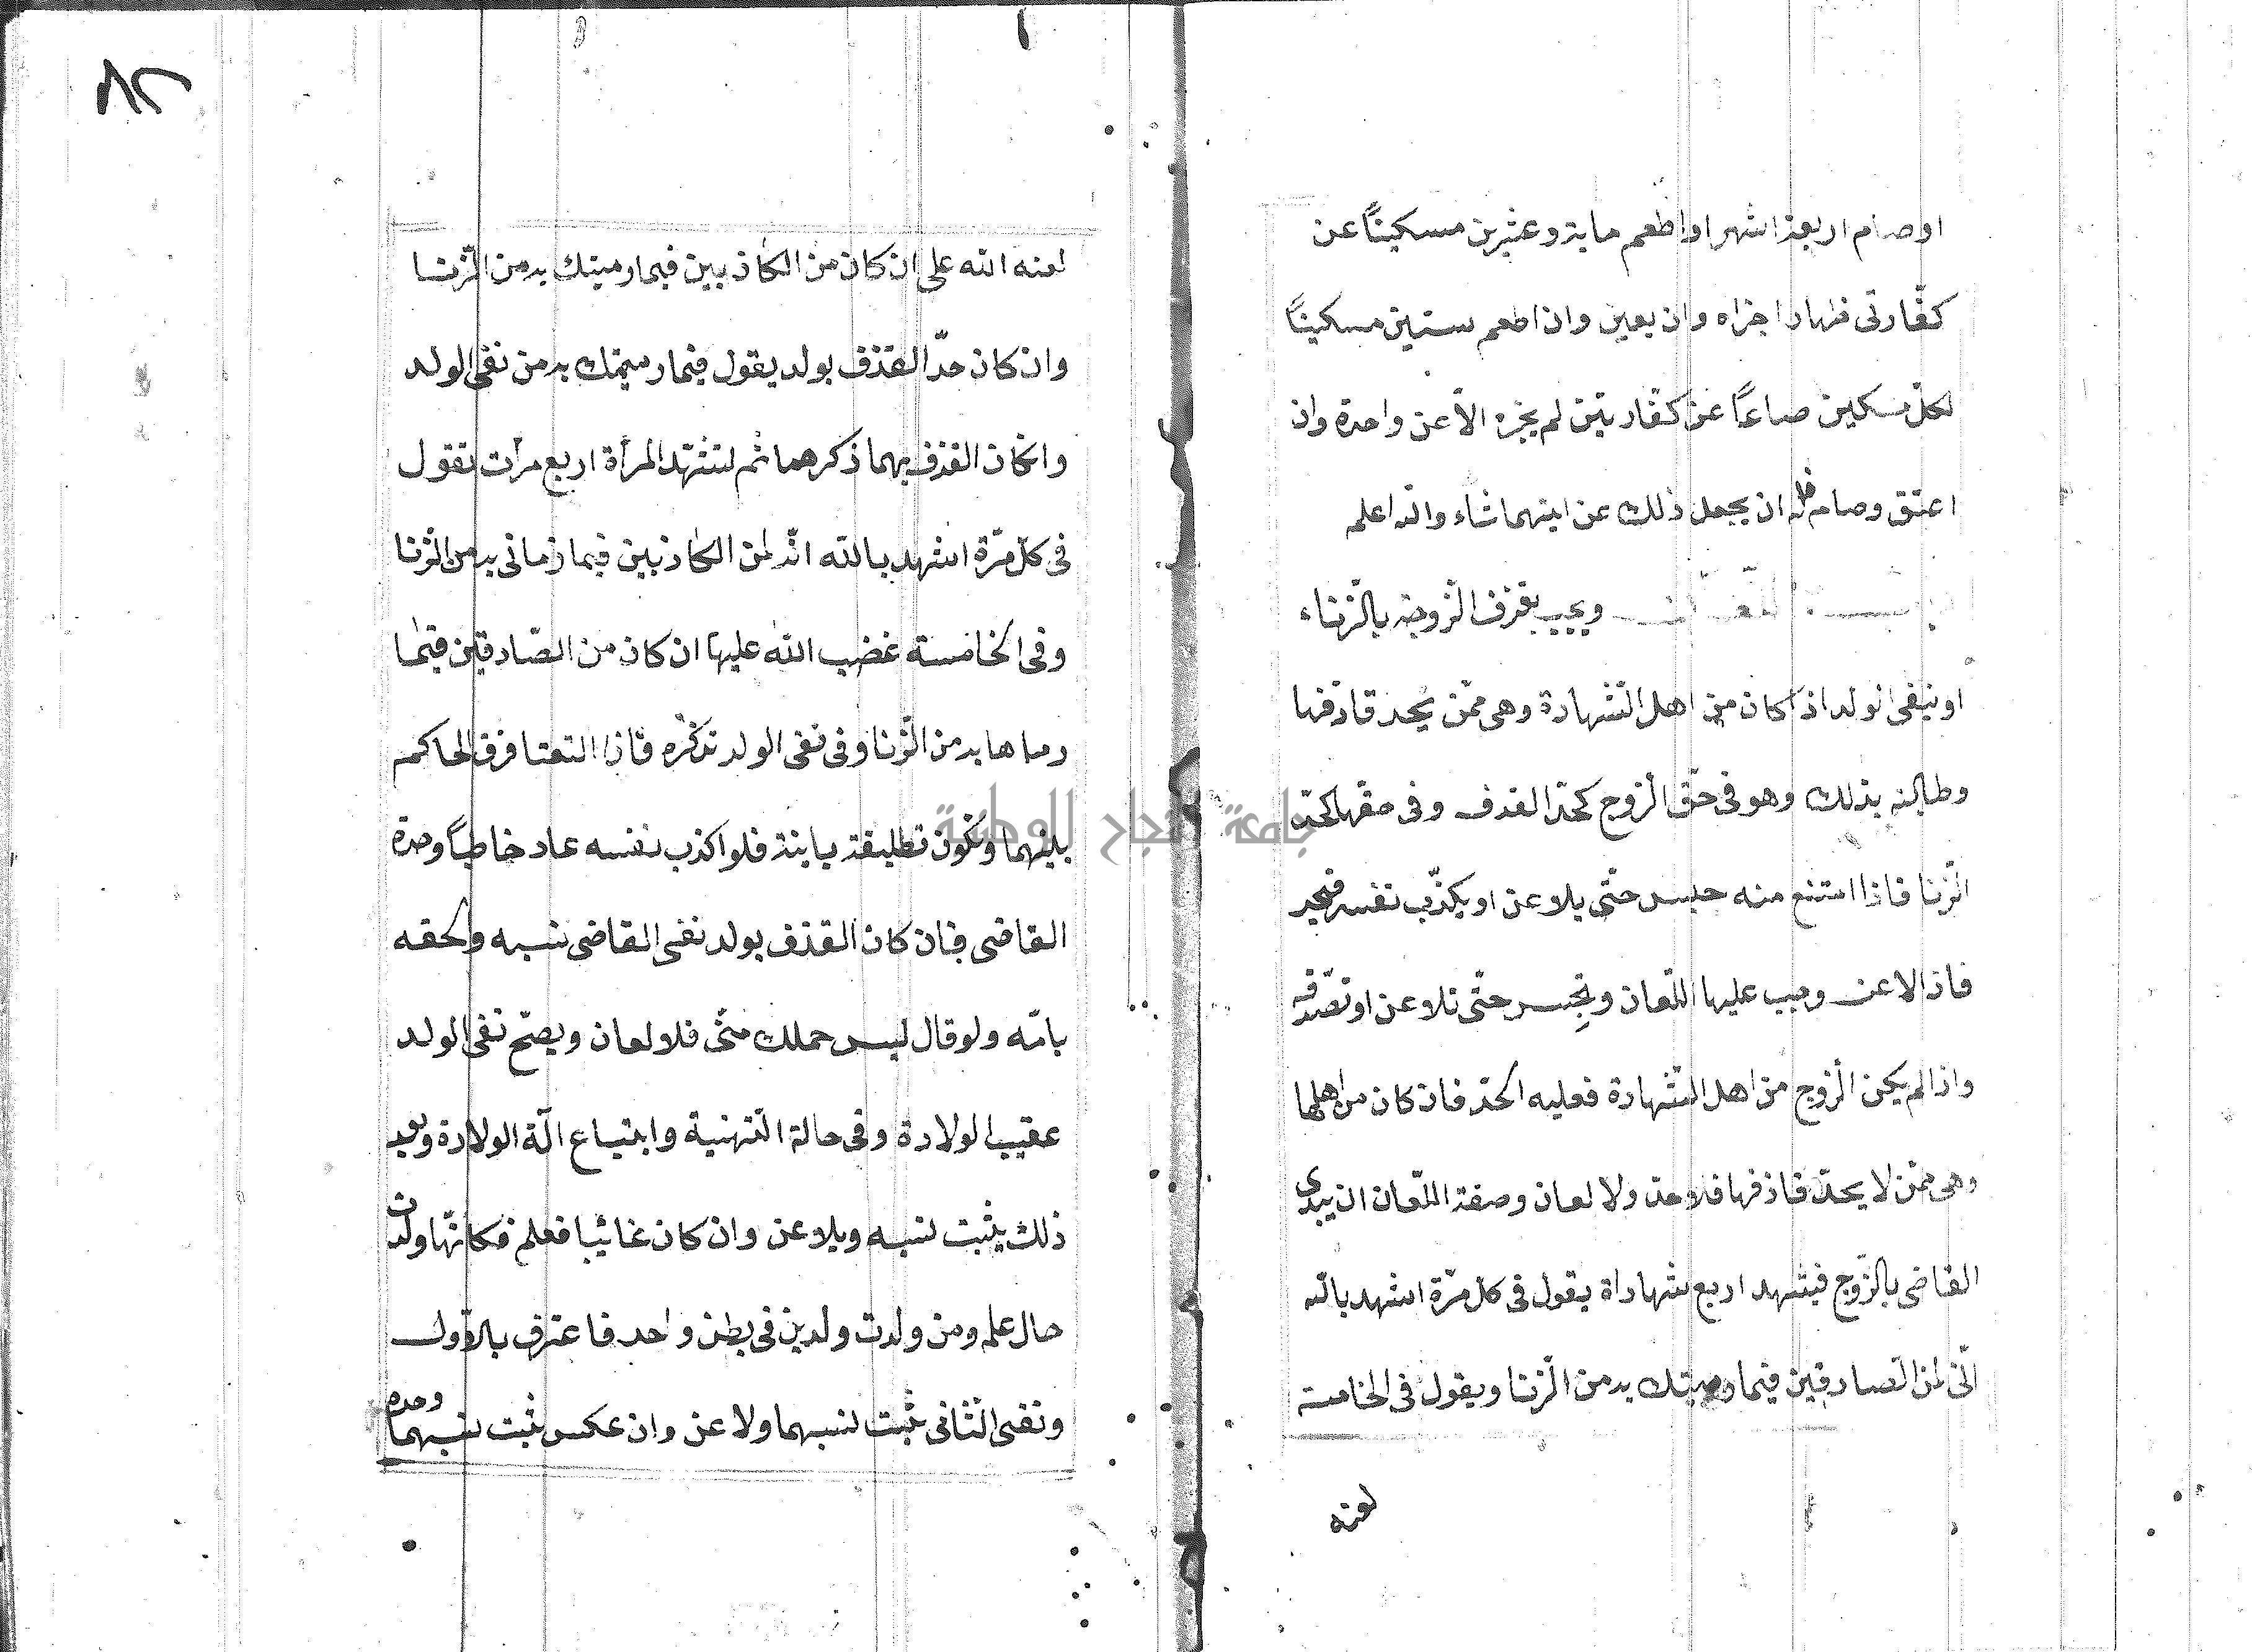 او صام اربعة اشهر او اطعم ماية وعشرين مسكينًا عن
كفّارتى ظهار اجزاه وان بعين وان اطعم ستين مسكينًا
لكلّ مسكين صاعًا عن كفّارتين لم يجزه الّا عن واحدة وان
اعتق وصام فله ان يجعل ذلك عن ايهما شاء والله اعلم
ويجب بقذف الزّوجة بالزّناء
او بنفى الولد اذا كان من اهل الشّهادة وهى ممّن يحد قاذفها
وطالبته بذلك وهو فى حقّ الزوج كحدّ القذف وفى حقّها كحدّ
الزّنا فاذا امتنع منه حبس حتّى يلاعن او يكذّب نفسه فيحد
فاذا لاعن وجب عليها اللّعان وتحبس حتّى تلاعن او تصدّقه
واذا لم يكن الزوج من اهل الشّهادة فعليه الحدّ فان كان من اهلها
وهى ممّن لا يحدّ قاذفها فلا حد ولا لعان وصفة اللّعان ان يبتدى
القاضى بالزّوج فيشهد اربع شهاداة يقول فى كل مرّة اشهد بالله
انّى لمن الصّادقين فيما رميتك به من الزّنا ويقول فى الخامسة
لعنه
٨٢
لعنه الله على ان كان من الكاذبين فيما رميتك به من الزّنا
وان كان حدّ القذف بولد يقول فيما رميتك به من نفى الولد
وانكان القذف بهما ذكرهما ثم لتشهد المرأة اربع مرآت تقول
فى كلّ مرّة اشهد بالله انّه لمن الكاذبين فيما رمانى به من الزّنا
وفى الخامسة غضب الله عليها ان كان من الصّادقين فيما
رماها به من الزّنا وفى نفى الولد تذكره فاذا التعنا فرق الحاكم
بينهما وتكون تطليقة باينة فلو اكذب نفسه عاد خاطباً وحدّه
القاضى فان كان القذف بولد نفى القاضى نسبه والحقه
بامّه ولو قال ليس حملك منّى فلا لعان ويصحّ نفى الولد
عقيب الولادة وفى حالة التهنية وابتياع آلة الولادة وبعد
ذلك يثبت نسبه ويلاعن وان كان غائبا فعلم فكانّها ولدت
حال علمه ومن ولدت ولدين فى بطن واحد فاعترف بالاول
ونفى الثّانى يثبت نسبهما ولاعن وان عكس يثبت نسبهما وحده
جامعة النجاح الوطنية